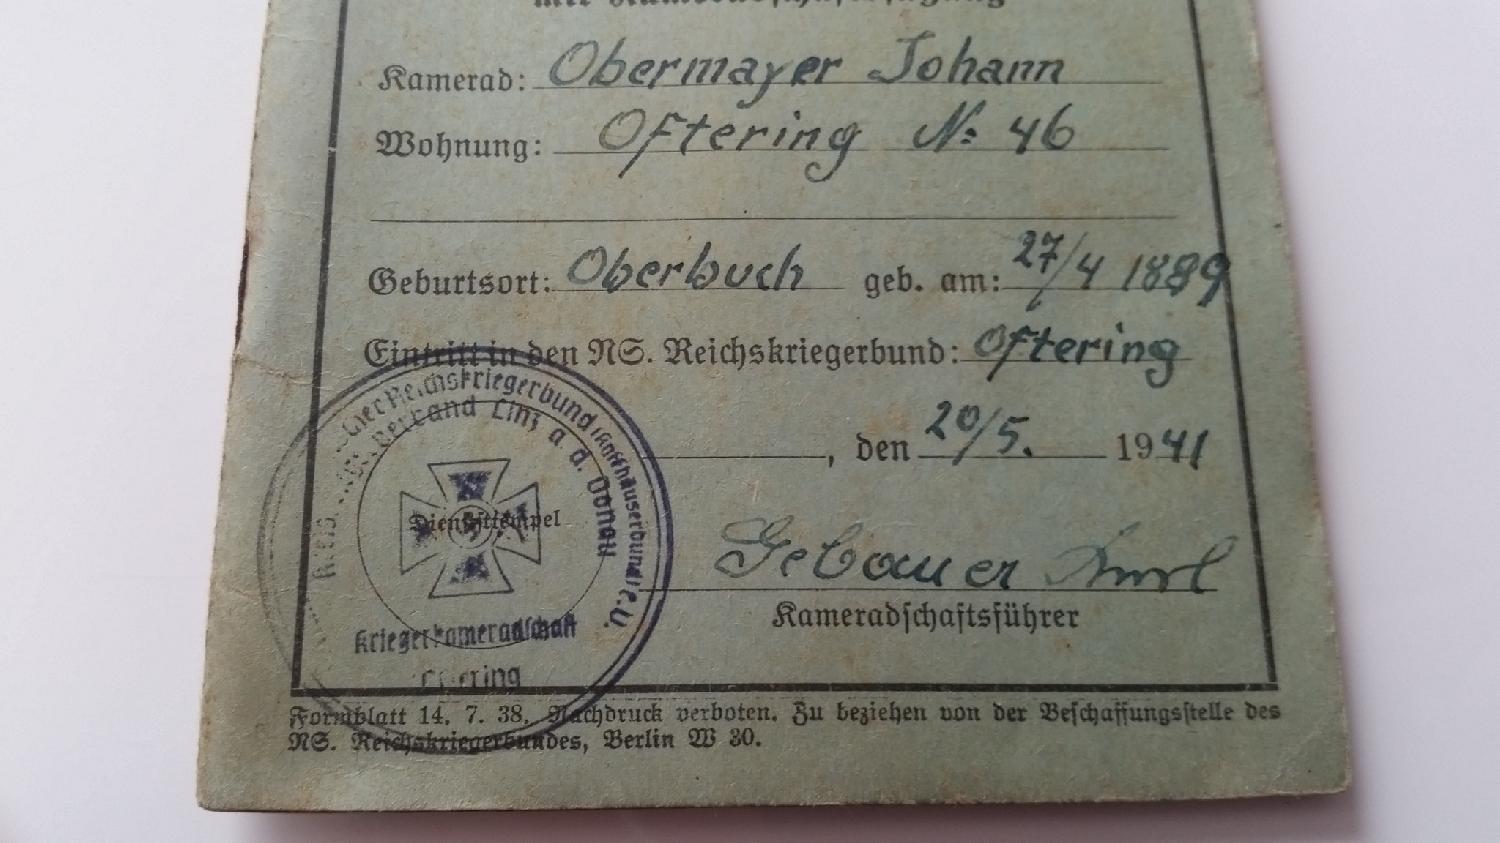 Kamerad: Obermayer Johann
Wohnung: Oftering N: 46
Geburtsort: Oberbuch geb. am: 27/4 1889
Eintritt in den NS. Reichskriegerbund: Oftering
, den 20/5. 1941
Gebauer
Kameradschaftsführer
Dienststempel
Reichskriegerbund (Kyffhäuserbund) e.V.
Linz a. d. Donau
Kriegerkameradschaft
Oftering
Formblatt 14. 7. 38. Nachdruck verboten. Zu beziehen von der Beschaffungsstelle des
NS. Reichskriegerbundes, Berlin W 30.